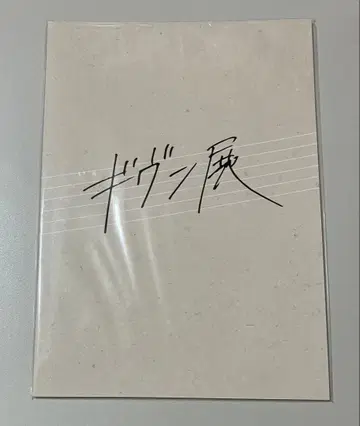 ギヴン展